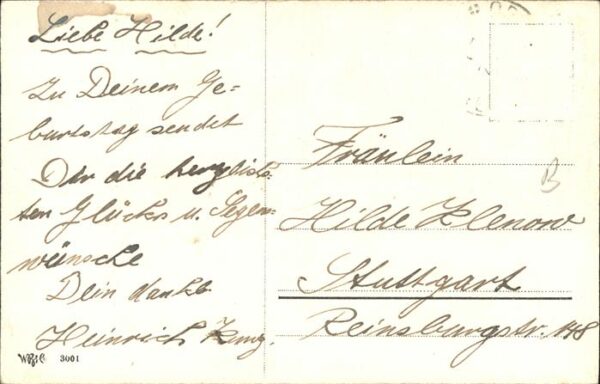 Liebe Hilde!
Zu Deinem Ge=
burtstag sendet
Dir die herzlichs=
ten Glücks u. Segen
wünsche
Dein
Heinrich
3001
Fräulein
B
Hilde Klenow
Stuttgart
Reinsburgstr. 148